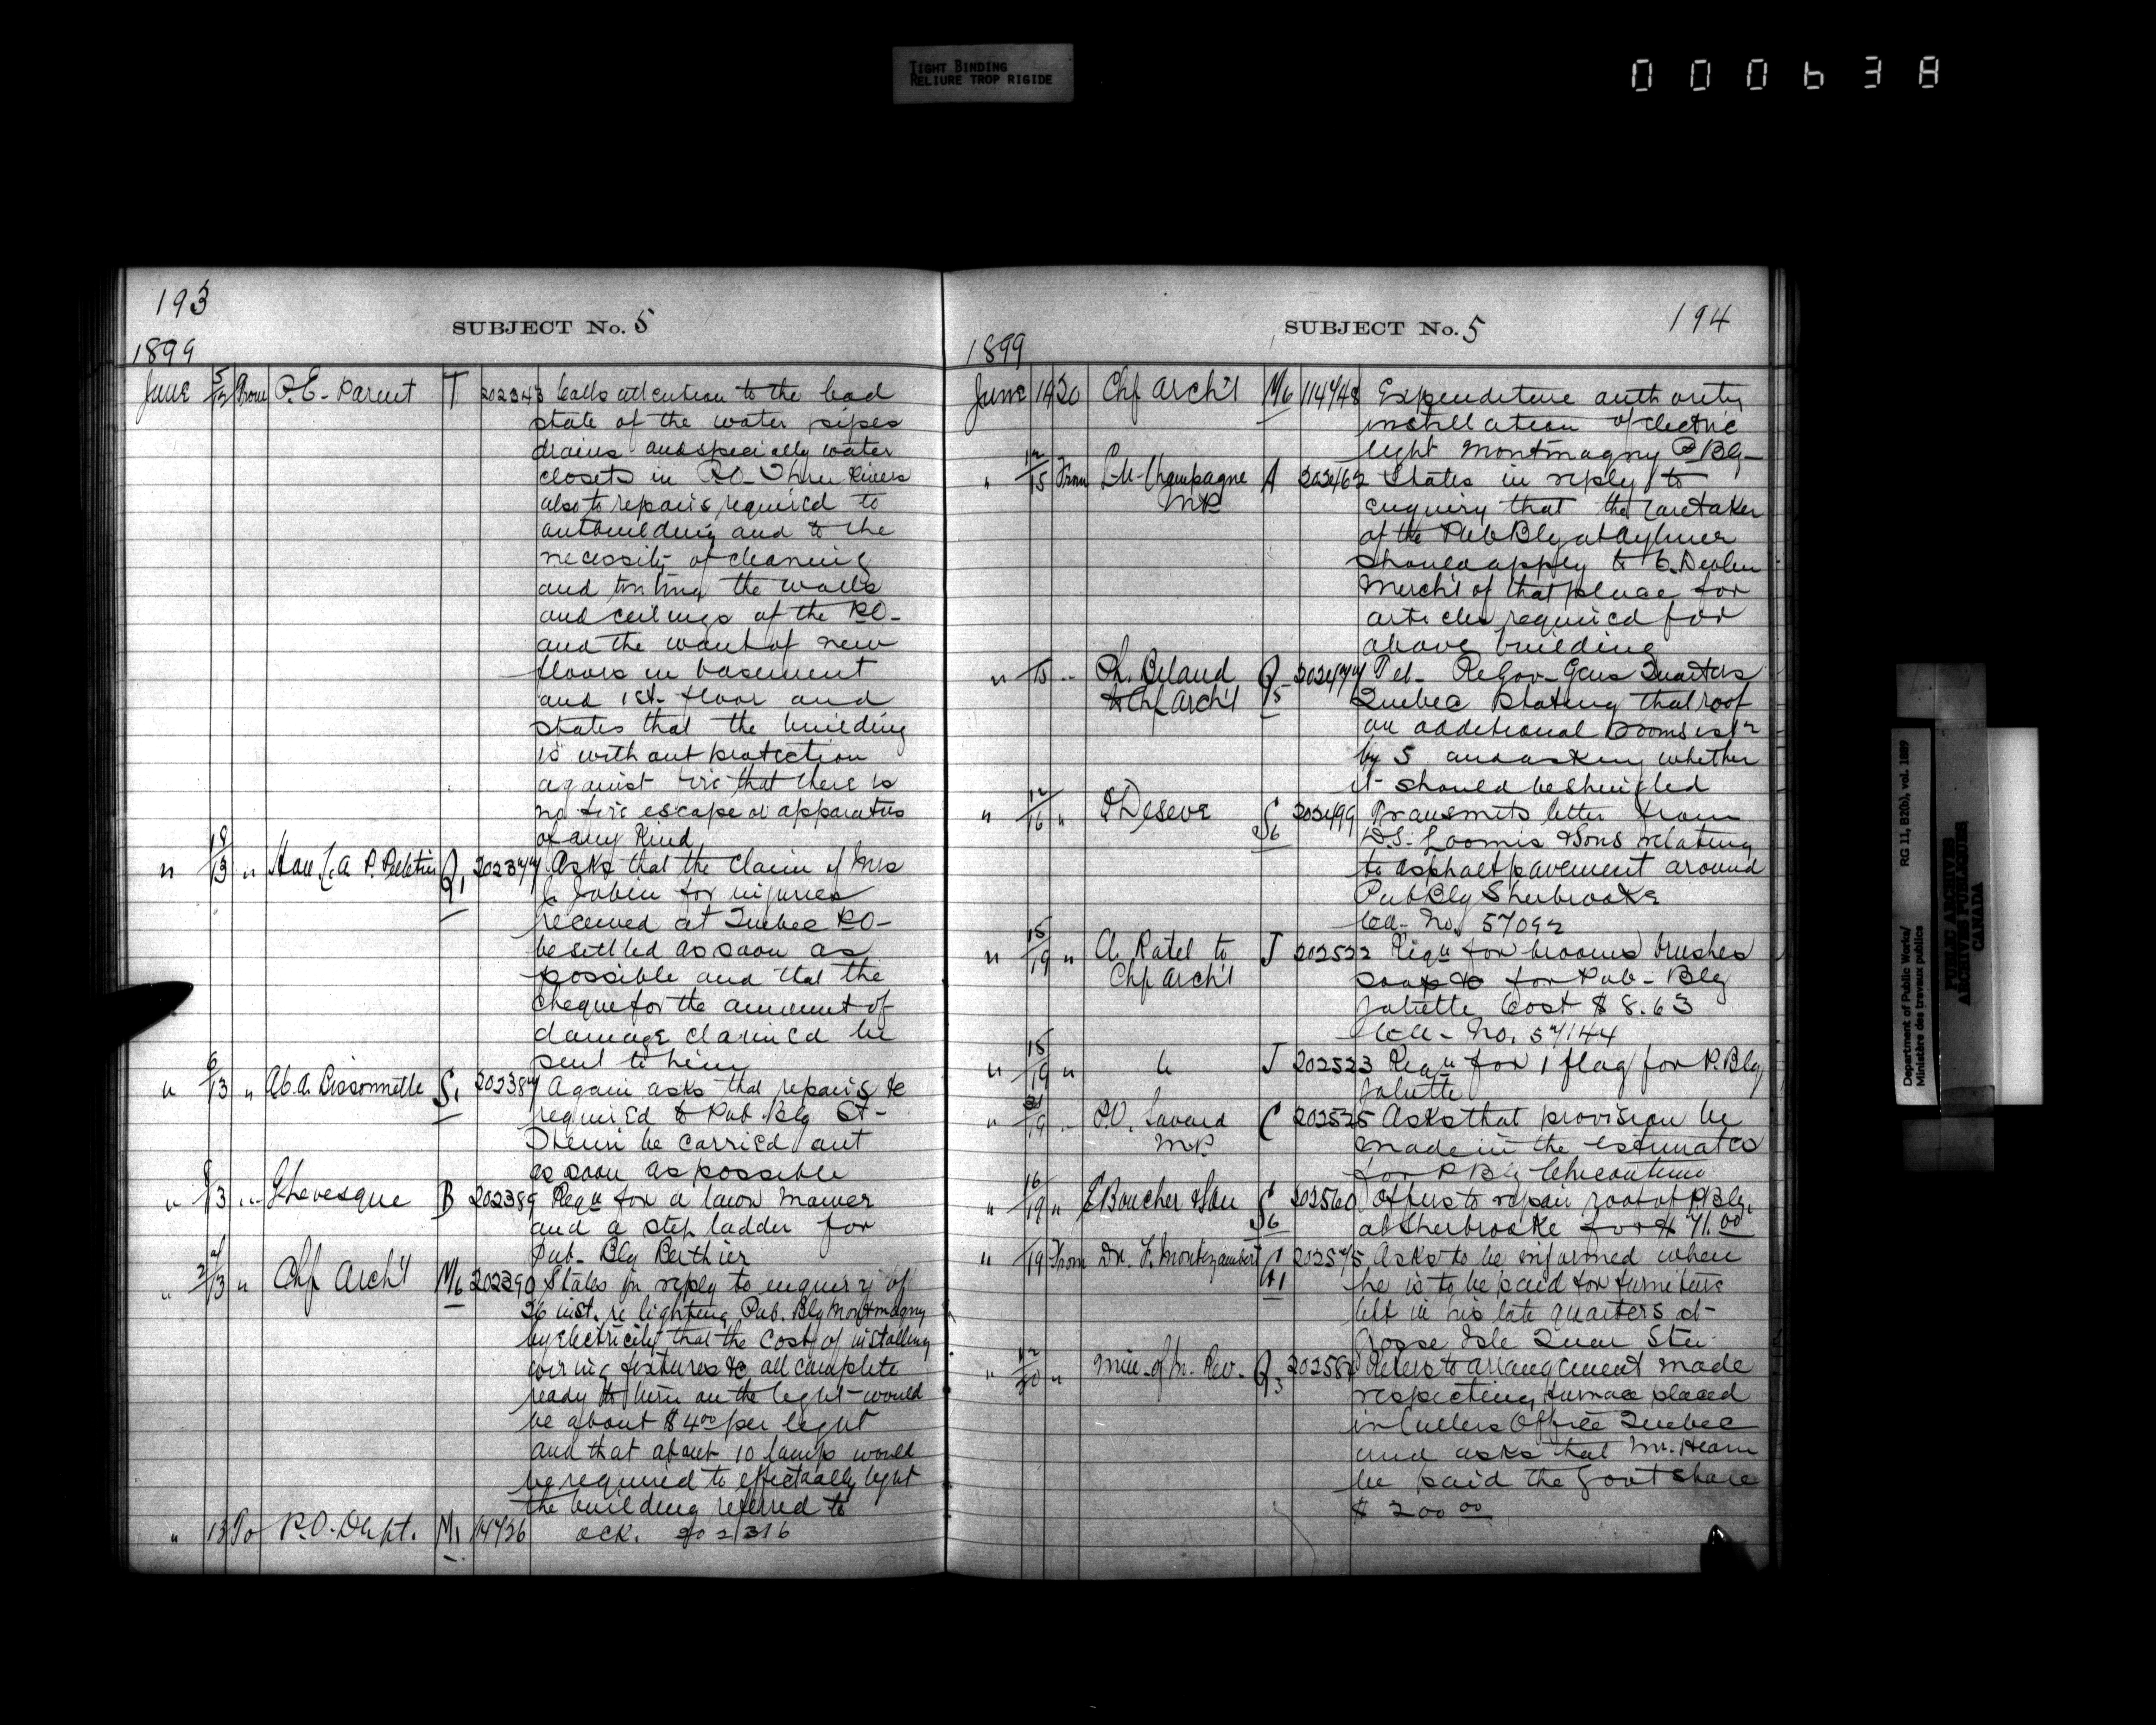 TIGHT BINDING
RELIURE TROP RIGIDE
000638
193
SUBJECT No. 5
1899
June 5/13 From P.E. Parent T 202343 Calls attention to the bad
state of the water pipes
drains and specially water
closets in P.O. Three Rivers
also to repairs required to
outbuilding and to the
necessity of cleaning
and tinting the walls
and ceilings of the P.O.
and the want of new
floors in basement
and 1st floor and
states that the building
is without protection
against fire that there is
no fire escape or apparatus
of any kind
" 8/13 " Hon. C.A.P. Pelletier Q1 202377 Asks that the claim of Mrs
Jobin for injuries
received at Quebec P.O.
be settled as soon as
possible and that the
cheque for the amount of
damage claimed be
sent to him
" 6/13 " Ab. A. Bissonnette S1 202387 Again asks that repairs &c
required to Pub. Blg St-
be carried out
as soon as possible
" 8/13 " Levesque B 202389 Reqn for a lawn mower
and a step ladder for
Pub. Blg Berthier
" 13 " Chf Arch't M6 202390 States in reply to enquiry of
26 inst. re lighting Pub. Blg Montmagny
by Electricity that the cost of installing
wiring fixtures &c all complete
ready to turn on the light would
be about $4.00 per light
and that about 10 lamps would
be required to effectually light
the building referred to
" 13 To P.O. Dept. M1 ack. 202316
SUBJECT No. 5
194
1899
June 14 20 Chf Arch't M6 114748 Expenditure authority
installation of electric
light Montmagny P Blg
" 12/15 From Champagne A 202467 States in reply to
MP
enquiry that the caretaker
of the Pub Blg at Aylmer
should apply to C. Devlin
Merch't of that place for
articles required for
above building
" 15 " Ph. Beland Q5 202477 Tel. Re Gov. Gens Quarters
to Chf Arch't
Quebec stating that roof
on additional rooms is 12
by 5 and asking whether
it should be shingled
" 12/16 " Deseve S6 202499 Transmits letter from
D.S. Loomis & Sons relating
to asphalt pavement around
Pub Blg Sherbrooke
No. 57092
" 15/19 " A. Ratel to J 202522 Reqn for brooms brushes
Chf Arch't
soap &c for Pub. Blg
Joliette Cost $8.63
No. 57144
" 15/19 " " J 202523 Reqn for 1 flag for P. Blg
Joliette
" 19 " P.V. Savard C 202525 Asks that provision be
MP
made in the Estimates
for P Blg Chicoutimi
" 16/19 " E Boucher & Son S6 202560 Offers to repair roof of P. Blg.
at Sherbrooke for $71.00
" 19 From Dr. F. Montizambert 202575 Asks to be informed when
he is to be paid for furniture
left in his late quarters at
Grosse Isle Quar Stn
" 12/20 " Min. of In. Rev. Q3 Refers to arrangement made
respecting furnace placed
in Cullers Office Quebec
and asks that Mr. Hearn
be paid the Govt share
$200.00
Department of Public Works/ RG 11, B2(b), vol. 1889
Ministère des travaux publics
PUBLIC ARCHIVES
ARCHIVES PUBLIQUES
CANADA